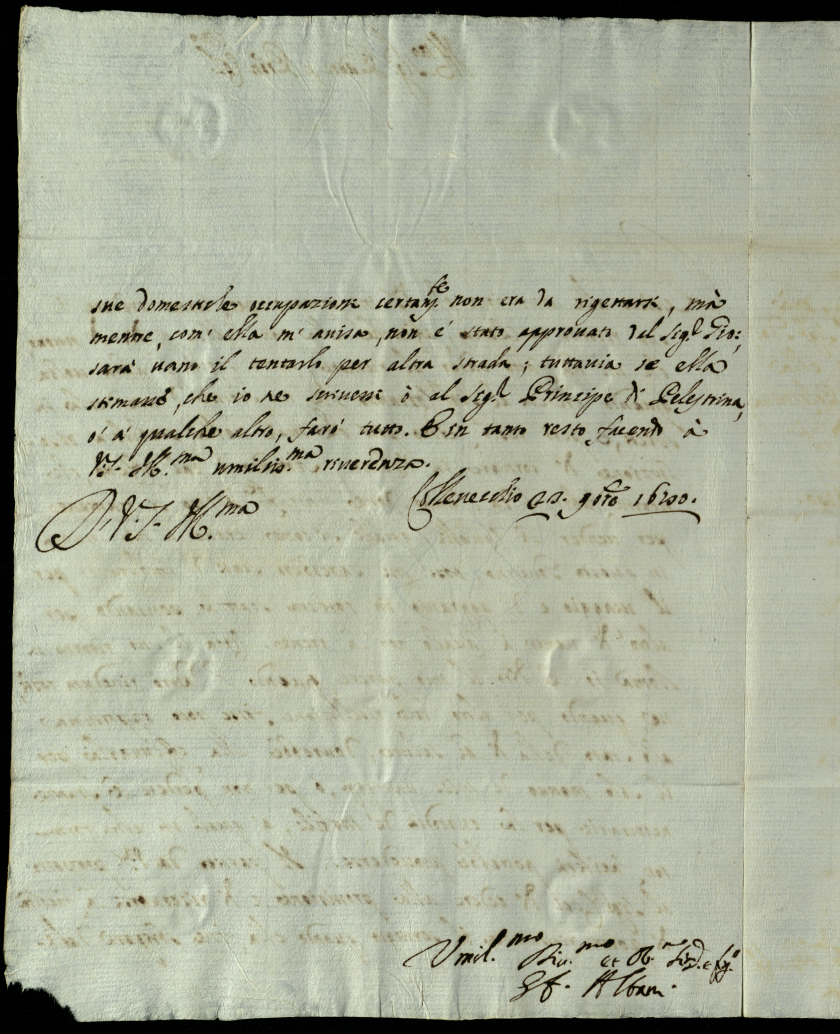 sue domestiche occupazioni certam.te non era da rigettare, mà
mentre, com' ella m' auisa, non é stato approuato dal Sig.r Gio:
sarà uano il tentarlo per altra strada; tuttauia se ella
stimasse, che io ne scriuessi ò al Sig.r Principe di Pelestrina,
ó à qualche altro, farò tutto. E in tanto resto facendo à
V.S. Ill.ma umiliss.ma riuerenza.
D. V.S. Ill.ma
Colleuecchio 9bre
Umil.mo Diu.mo et Ob.mo
Albani.